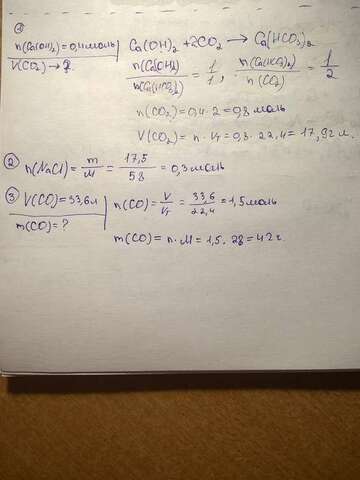 ①
n(Ca(OH)₂) = 0,4 моль
V(CO₂) → ?
Ca(OH)₂ + 2CO₂ → Ca(HCO₃)₂
n(Ca(OH)₂) / n(Ca(HCO₃)₂) = 1/1, n(Ca(HCO₃)₂) / n(CO₂) = 1/2
n(CO₂) = 0,4 · 2 = 0,8 моль
V(CO₂) = n · Vт = 0,8 · 22,4 = 17,92 л.
② n(NaCl) = m/M = 17,5/58 = 0,3 моль
③ V(CO) = 33,6 л
m(CO) = ?
n(CO) = V/Vт = 33,6/22,4 = 1,5 моль
m(CO) = n · M = 1,5 · 28 = 42 г.